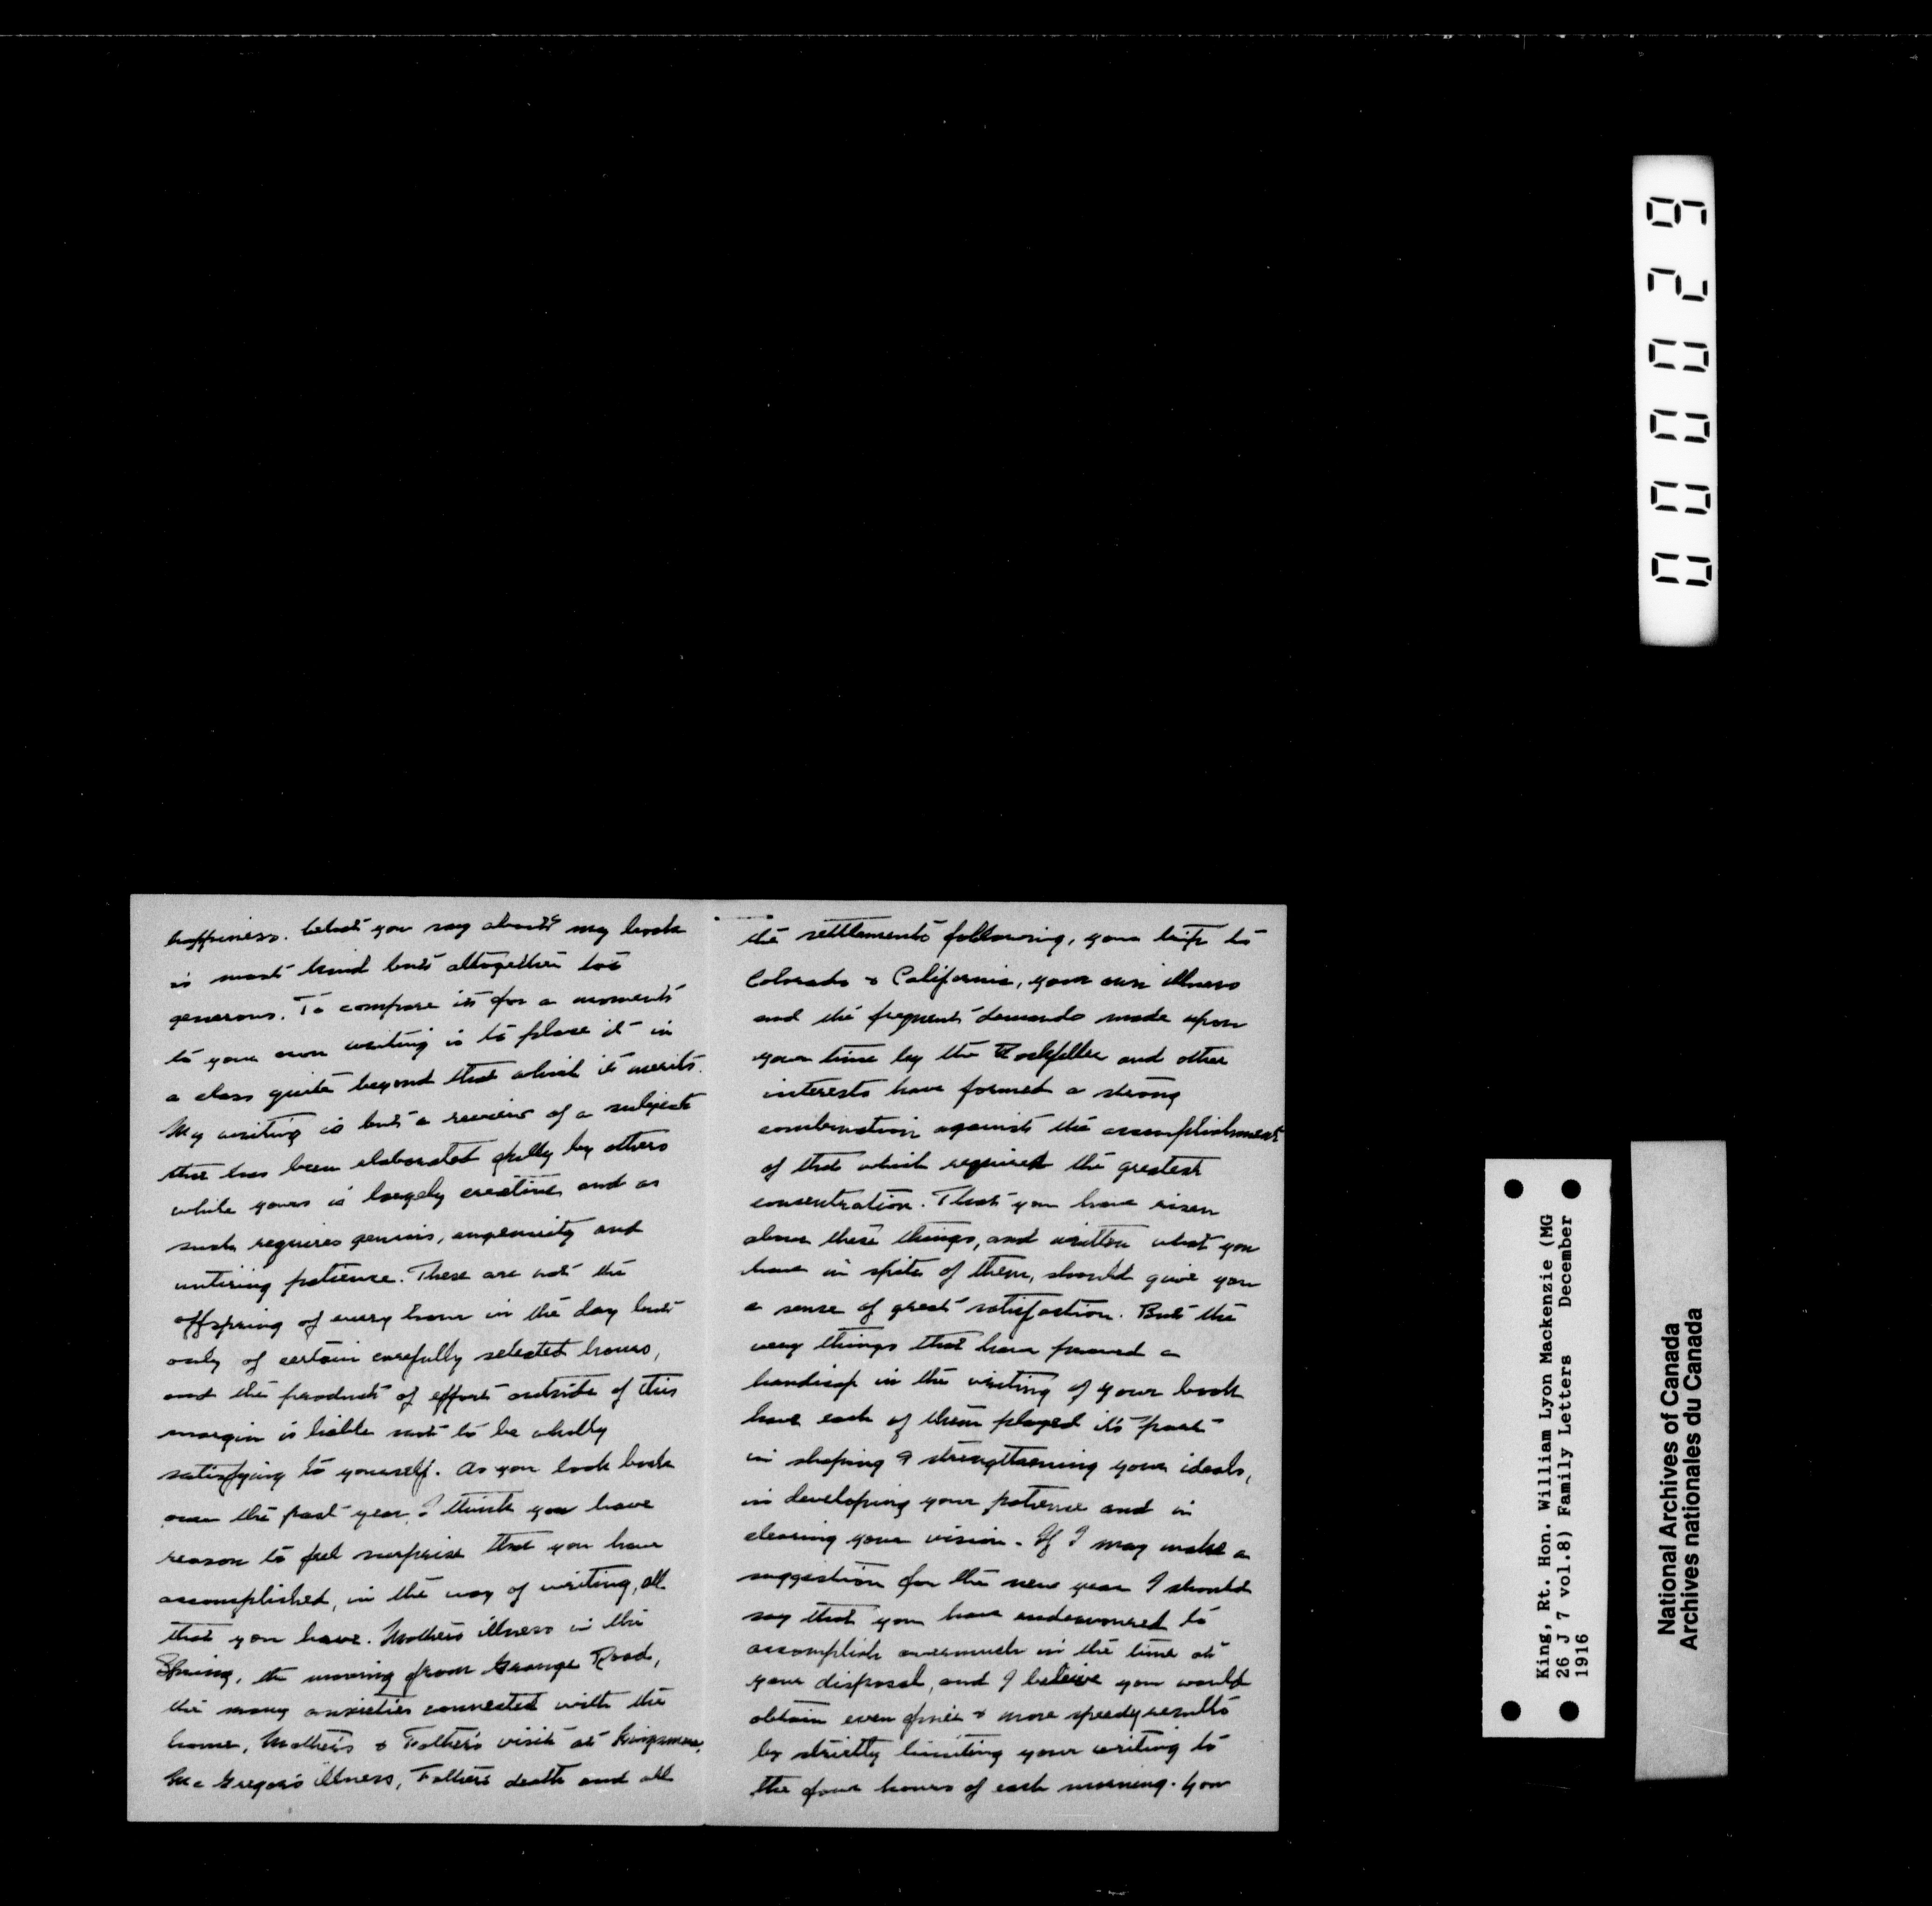 happiness. What you say about my book
is most kind but altogether too
generous. To compare it for a moment
to your own writing is to place it in
a class quite beyond that which it merits.
My writing is but a review of a subject
that has been elaborated fully by others
while yours is largely creative and as
such requires genius, ingenuity and
untiring patience. These are not the
offspring of every hour in the day but
only of certain carefully selected hours,
and the product of effort outside of this
margin is liable not to be wholly
satisfying to yourself. As you look back
over the past year, I think you have
reason to feel surprise that you have
accomplished, in the way of writing, all
that you have. Mother's illness in the
Spring, the moving from Grange Road,
the many anxieties connected with the
home, Mother's & Father's visit at Kingsmere,
McGregor's illness, Father's death and all
the settlements following, your trip to
Colorado & California, your own illness
and the frequent demands made upon
your time by the Rockfeller and other
interests have formed a strong
combination against the accomplishment
of that which required the greatest
concentration. That you have risen
above these things, and written what you
have in spite of them, should give you
a sense of great satisfaction. But the
very things that have proved a
handicap in the writing of your book
have each of them played it's part
in shaping & strengthening your ideals,
in developing your patience and in
clearing your vision. If I may make a
suggestion for the new year I should
say that you have endeavoured to
accomplish overmuch in the time at
your disposal, and I beleive you would
obtain even finer & more speedy results
by strictly limiting your writing to
the four hours of each morning. You
000029
King, Rt. Hon. William Lyon Mackenzie (MG
26 J 7 vol.8) Family Letters December
1916
National Archives of Canada
Archives nationales du Canada